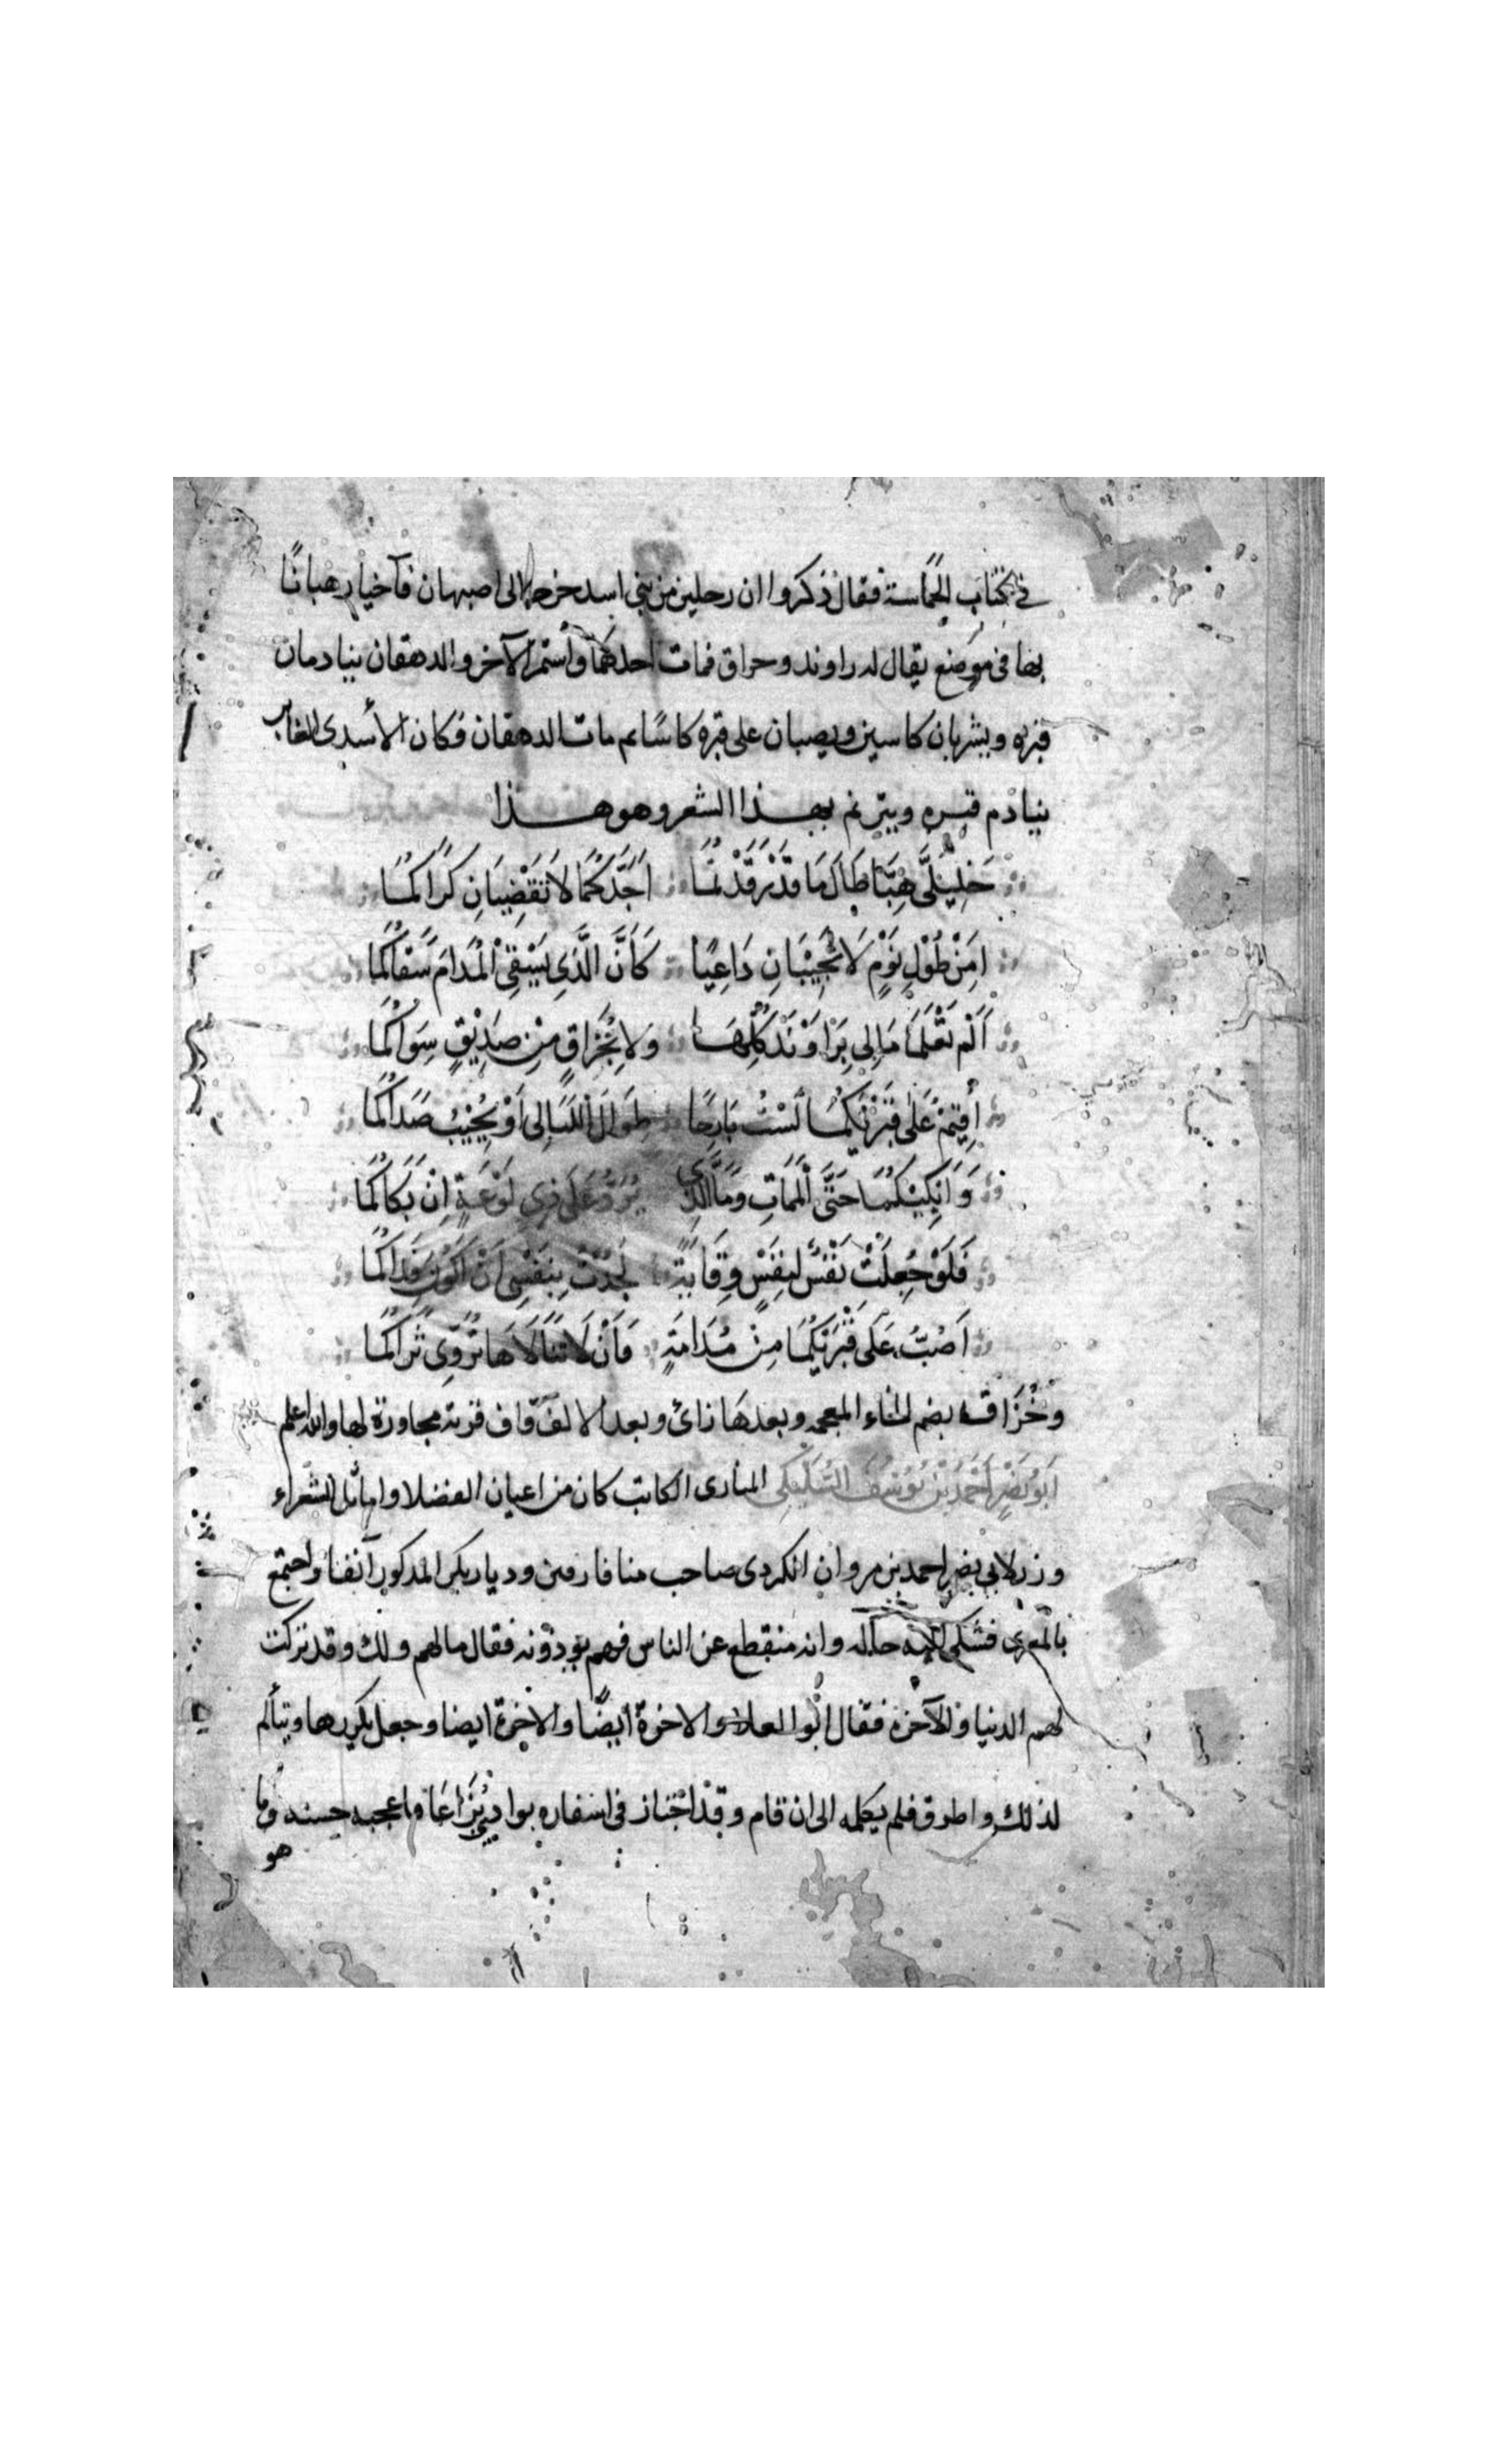 في كتاب الحماسة فقال ذكروا ان رجلين من بني اسد خرجا الى اصبهان فآخيا دهبانًا
بها في موضع يقال له راوند وخزاق فمات احدهما واستمر الآخر والدهقان ينادمان
قبره ويشربان كاسين ويصبان على قبره كاسًا ثم مات الدهقان فكان الأسدى الغابر
ينادم قبره ويترنم بهذا الشعر وهو هذا
خَلِيلَيَّ هُبَّا طَالَ مَا قَدْ رَقَدْتُمَا أَجَدَّكُمَا لَا تَقْضِيَانِ كَرَاكُمَا
امِنْ طُوْلِ نَوْمٍ لَا تُجِيْبَانِ دَاعِيًا كَأَنَّ الَّذِي يَسْقِي الْمُدَامَ سَقَاكُمَا
أَلَمْ تَعْلَمَا مَا لِي بِرَاوَنْدَ كُلِّهَا وَلَا بِخُزَاقٍ مِنْ صَدِيْقٍ سِوَاكُمَا
أُقِيْمُ عَلَى قَبْرَيْكُمَا لَسْتُ بَارِحًا طِوَالَ اللَّيَالِي أَوْ يُجِيْبَ صَدَاكُمَا
وَأَبْكِيْكُمَا حَتَّى الْمَمَاتِ وَمَا الَّذِي يَرُدُّ عَلَى ذِي لَوْعَةٍ إِنْ بَكَاكُمَا
فَلَوْ جُعِلَتْ نَفْسٌ لِنَفْسٍ وِقَايَةً لَجُدْتُ بِنَفْسِي أَنْ أَكُوْنَ فِدَاكُمَا
أَصُبُّ عَلَى قَبْرَيْكُمَا مِنْ مُدَامَةٍ فَأَنْ لَا تَنَالَاهَا تُرَوِّي ثَرَاكُمَا
وخُزَاق بضم الخاء المعجمه وبعدها زائ وبعد الالف قاف قرية مجاورة لها والله اعلم
أَبُو نَصْرٍ أَحْمَدُ بْنُ يُوْسُفَ السُّلَيْكِي المنازى الكاتب كان من اعيان الفضلا واماثل الشعراء
وزر لابي نصر احمد بن مروان الكردى صاحب ميافارقين وديار بكر المذكور آنفا واجتمع
بالمعرى فشكى اليه حاله وانه منقطع عن الناس فهم يؤذونه فقال مالهم ولك وقد تركت
لهم الدنيا والآخرة فقال ابُو العلا والاخرة ايضًا والاخرة ايضا وجعل يكررها ويتألم
لذلك واطرق فلم يكلمه الى ان قام وقد اجتاز في اسفاره بوادي بُزَاعَا فاعجبه حسنه وما
هو